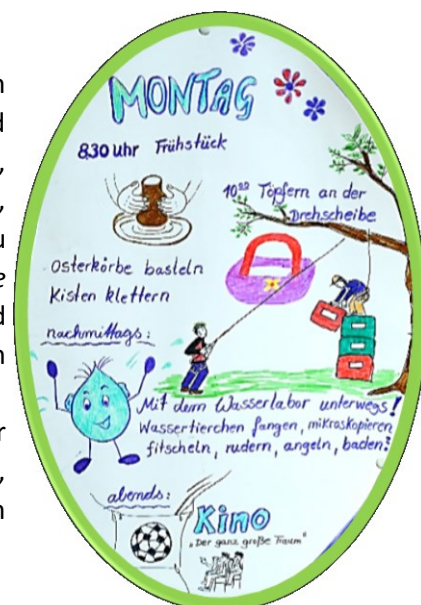 MONTAG
8.30 Uhr Frühstück
10⁰⁰ Töpfern an der
Drehscheibe
Osterkörbe basteln
Kisten klettern
nachmittags:
Mit dem Wasserlabor unterwegs!
Wassertierchen fangen, mikroskopieren
fitscheln, rudern, angeln, baden?
abends:
Kino
"Der ganz große Traum"